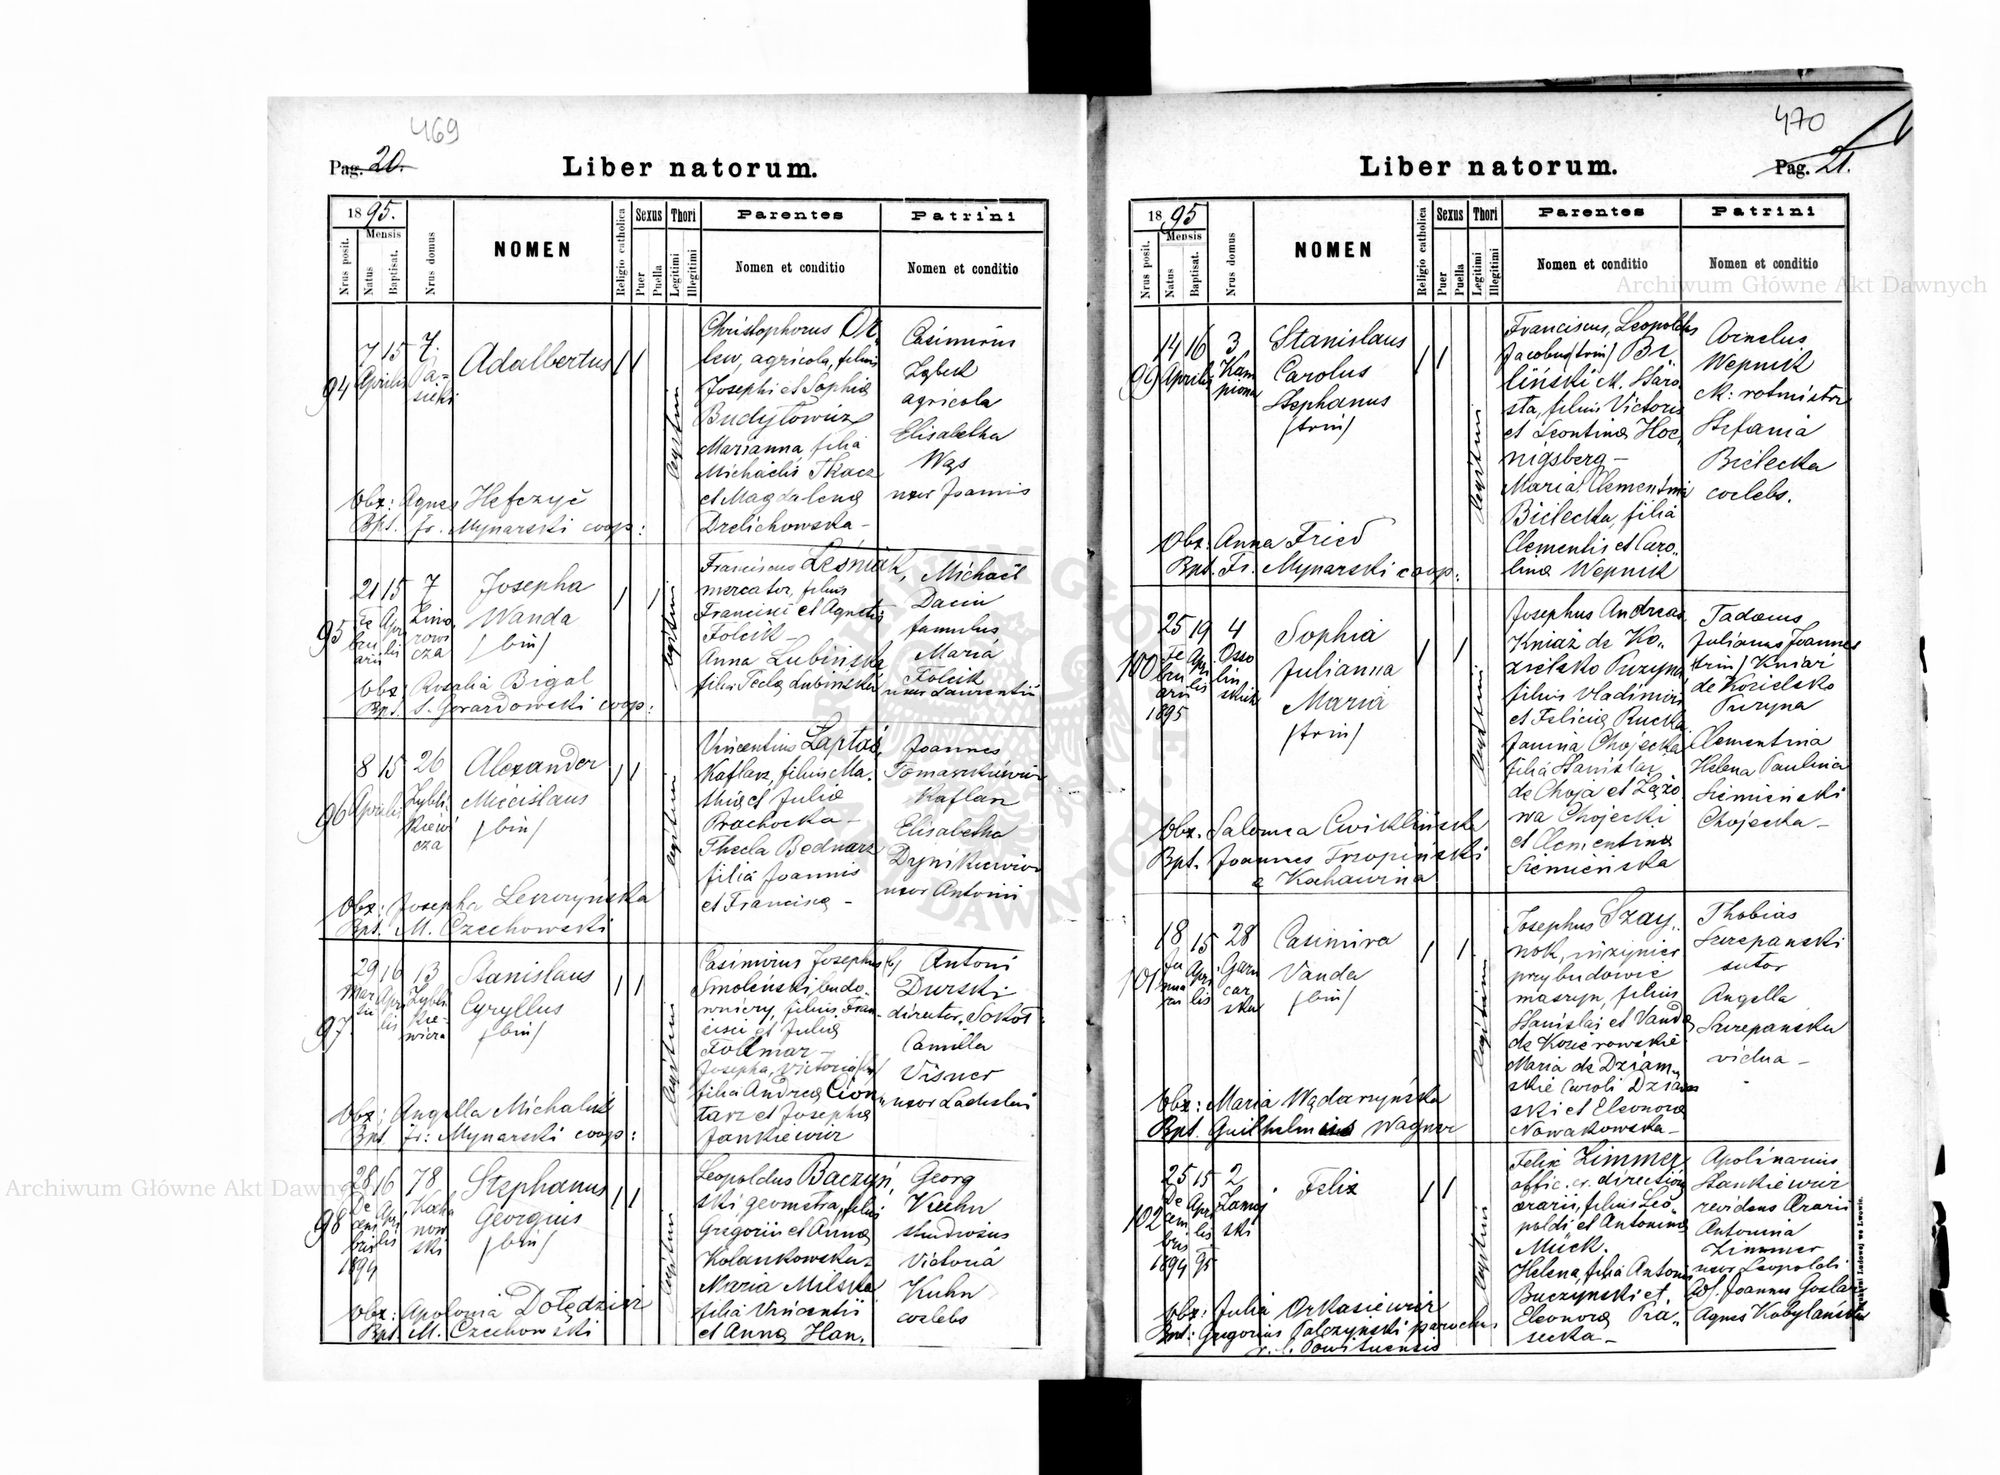 469
Pag. 20.
Liber natorum.
1895.
Mensis
Nrus posit.
Natus
Baptisat.
Nrus domus
NOMEN
Religio catholica
Sexus
Puer
Puella
Thori
Legitimi
Illegitimi
Parentes
Nomen et conditio
Patrini
Nomen et conditio
94
7 15 7
Aprilis
Adalbertus
legitimi
Christophorus
agricola, filius
Josephi et Sophiæ
Marianna filia
Michaelis Tkacz
et Magdalenæ
Drelichowska
Casimirus
agricola
Elisabetha
Wąs
uxor Joannis
Obx: Agnes Hefczyć
Bpt. Fr. Mynarski coop:
95
21 15 7
Februarii
Aprilis
Zimorowicza
Josepha
Wanda
/bin/
legitimi
Franciscus Leśniak,
mercator, filius
Francisci et Agnetis
Folcik
Anna Lubińska
filia Teclæ Lubińskiej
Michael
Dacin
famulus
Maria
Folcik
uxor Laurentii
Obx: Rosalia Bigal
Bpt. S. Gorardowski coop:
96
8 15 26
Aprilis
Zyblikiewicza
Alexander
Miecislaus
/bin/
legitimi
Vincentius Laptaś,
Kaflarz, filius Mathiæ et Juliæ
Prachocka
Thecla Bednarz
filia Joannis
et Franciscæ
Joannes
Tomaszkiewicz
Kaflarz
Elisabetha
uxor Antonii
Obx: Josepha Leszczyńska
Bpt. M. Czechowski
97
29 16 13
Martii
Aprilis
Zyblikiewicza
Stanislaus
Cyryllus
/bin/
legitimi
Casimirus Josephus
Smolenski budowniczy, filius Francisci et Juliæ
Follmar
Josepha, Victoria
filia Andreæ Ciontarz et Josephæ
Jankiewicz
Antoni
Durski
director "Sokoł"
Camilla
Visner
uxor Ladislai
Obx: Angella Michaluk
Bpt. Fr: Mynarski coop:
98
28 16 78
Decembris
Aprilis
1894
Kochanowski
Stephanus
Georgius
/bin/
legitimi
Leopoldus Baczyński geometra, filius
Gregorii et Annæ
Kolankowska
Maria Milska
filia Vincentii
et Annæ Han.
Georg
Kuhn
studiosus
Victoria
Kuhn
coelebs
Obx: Apolonia Dołędzicz
Bpt. M. Czechowski
470
Pag. 21.
Liber natorum.
1895
Mensis
Nrus posit.
Natus
Baptisat.
Nrus domus
NOMEN
Religio catholica
Sexus
Puer
Puella
Thori
Legitimi
Illegitimi
Parentes
Nomen et conditio
Patrini
Nomen et conditio
99
14 16 3
Aprilis
Kampiona
Stanislaus
Carolus
Stephanus
/trin/
legitimi
Franciscus, Leopoldus
Jacobus /trin/
filius Victoris
et Leontinæ Hoenigsberg
Maria Clementina
Bielecka, filia
Clementis et Carolinæ Wepnik
Cornelus
Wepnik
rotmistrz
Stefania
Bielecka
coelebs.
Obx: Anna Fried
Bpt. Fr. Mynarski coop:
100
25 19 4
Februarii
Aprilis
1895
Ossolinskich
Sophia
Julianna
Maria
/trin/
legitimi
Josephus Andreas
Kniaż de Kozielsko Puzyna
filius Vladimiri
et Feliciæ Rucka
Janina Chojecka
filia Stanislai
de Choja et Łazowa Chojecki
et Clementinæ
Siemieńska
Tadæus
Julianus Joannes
/trin/ Kniaź
de Kozielsko
Puzyna
Clementina
Helena Paulina
Siemieński
Chojecka
Obx. Salomea Cwiklińska
Bpt. Joannes Trzopiński
a Kochawina
101
18 15 28
Januarii
Aprilis
Garncarska
Casimira
Vanda
/bin/
legitimi
Josephus Szaynok, inżynier
przy budowie
maszyn, filius
Stanislai et Vandæ
de Kozierowskie
Maria de Dziamskie Caroli Dziamski et Eleonoræ
Nowakowska
Thobias
Szczepanski
sutor
Angella
Szczepanska
vidua
Obx: Maria Wędarzyńska
Bpt. Guilhelmus Wagner
102
25 15 2
Decembris
Aprilis
1894 95
Zamojski
Felix
legitimi
Felix Zimmer
offic. cr. directionis
ærarii, filius Leopoldi et Antoninæ
Mück.
Helena, filia Antonii
Buczynski et
Eleonoræ Piasecka
Apolinarius
Stankiewicz
revidens Ærarii
Antonina
Zimmer
uxor Leopoldi
Joannes Goslar
Agnes Kobylańska
Obx. Julia Orkasiewicz
Bpt: Gregorius Palczynski parochus
Archiwum Główne Akt Dawnych
Archiwum Główne Akt Dawnych